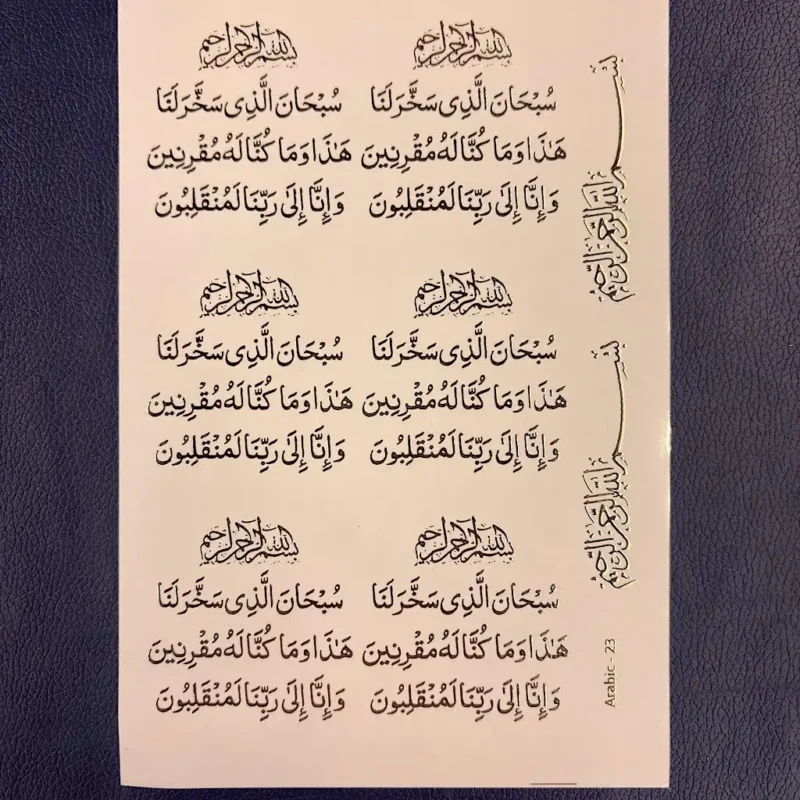 بسم الله الرحمن الرحيم
سُبْحَانَ الَّذِى سَخَّرَ لَنَا
هَٰذَا وَمَا كُنَّا لَهُ مُقْرِنِينَ
وَإِنَّا إِلَىٰ رَبِّنَا لَمُنْقَلِبُونَ
بسم الله الرحمن الرحيم
سُبْحَانَ الَّذِى سَخَّرَ لَنَا
هَٰذَا وَمَا كُنَّا لَهُ مُقْرِنِينَ
وَإِنَّا إِلَىٰ رَبِّنَا لَمُنْقَلِبُونَ
بسم الله الرحمن الرحيم
بسم الله الرحمن الرحيم
سُبْحَانَ الَّذِى سَخَّرَ لَنَا
هَٰذَا وَمَا كُنَّا لَهُ مُقْرِنِينَ
وَإِنَّا إِلَىٰ رَبِّنَا لَمُنْقَلِبُونَ
بسم الله الرحمن الرحيم
سُبْحَانَ الَّذِى سَخَّرَ لَنَا
هَٰذَا وَمَا كُنَّا لَهُ مُقْرِنِينَ
وَإِنَّا إِلَىٰ رَبِّنَا لَمُنْقَلِبُونَ
بسم الله الرحمن الرحيم
بسم الله الرحمن الرحيم
سُبْحَانَ الَّذِى سَخَّرَ لَنَا
هَٰذَا وَمَا كُنَّا لَهُ مُقْرِنِينَ
وَإِنَّا إِلَىٰ رَبِّنَا لَمُنْقَلِبُونَ
بسم الله الرحمن الرحيم
سُبْحَانَ الَّذِى سَخَّرَ لَنَا
هَٰذَا وَمَا كُنَّا لَهُ مُقْرِنِينَ
وَإِنَّا إِلَىٰ رَبِّنَا لَمُنْقَلِبُونَ
Arabic - 23